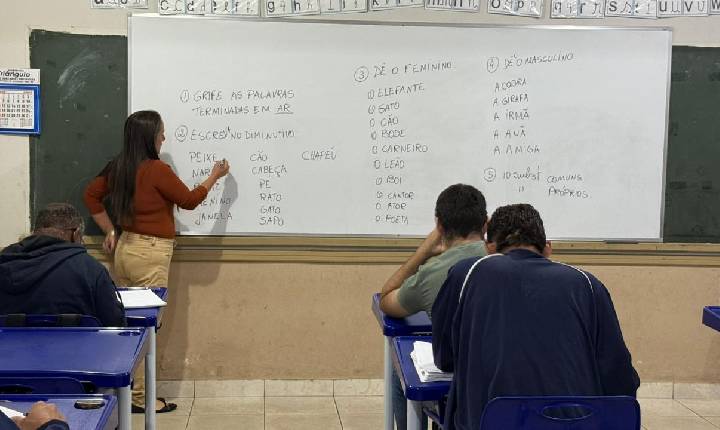 ① GRIFE AS PALAVRAS
TERMINADAS EM AR
② ESCREVA NO DIMINUTIVO
PEIXE CÃO CHAPÉU
CABEÇA
PÉ
RATO
JANELA GATO
SAPO
③ DÊ O FEMININO
O ELEFANTE
O GATO
O CÃO
O BODE
O CARNEIRO
O LEÃO
O BOI
O CANTOR
O ATOR
O POETA
④ DÊ O MASCULINO
A GIRAFA
A IRMÃ
A AMIGA
⑤ 10 subst COMUNS
" PRÓPRIOS